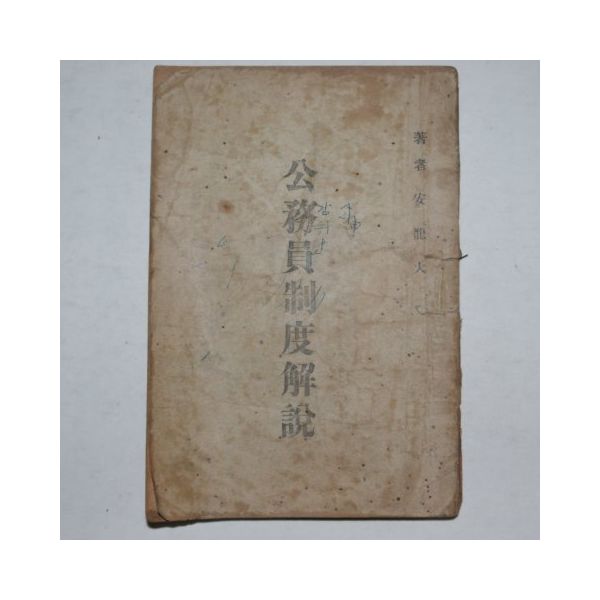 著者 安龍大
公務員制度解說